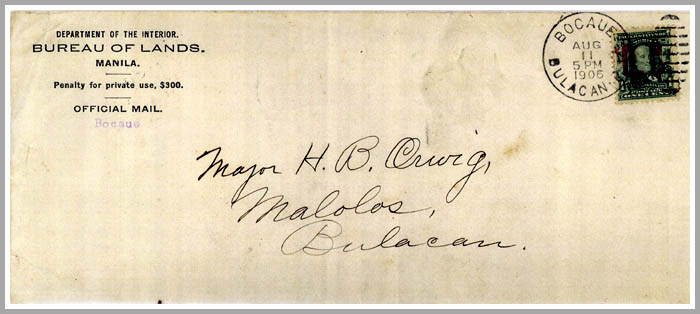 DEPARTMENT OF THE INTERIOR.
BUREAU OF LANDS.
MANILA.
Penalty for private use, $300.
OFFICIAL MAIL.
Bocaue
BOCAUE
AUG
11
5 PM
1906
BULACAN.
Major H. B. Orwig,
Malolos,
Bulacan.